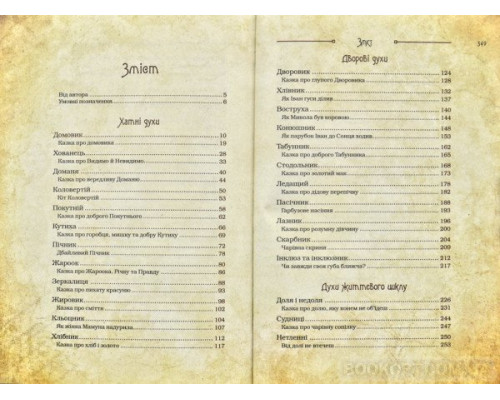 Зміст
Від автора 5
Умовні позначення 6
Хатні духи
Домовик 10
Казка про домовика 19
Хованець 28
Казка про Видимо й Невидимо 33
Доманя 40
Казка про вередливу Доманю 44
Коловертій 50
Кіт Коловертій 53
Покутній 58
Казка про доброго Покутнього 62
Кутиха 66
Казка про горобця, мишку та добру Кутиху 69
Пічник 72
Дбайливий Пічник 78
Жароок 80
Казка про Жароока, Річку та Правду
Зеркалиця 88
Казка про пихату красуню
Жировик 98
Казка про сміття
Кльоцник 104
Як жінка Манупа надурила 107
Хлібник 112
Казка про хліб і золото 117
349
Дворові духи
Дворовик 124
Казка про глупого Дворовика 128
Хлівник 132
Як Іван гуси ділив 137
Воструха 140
Як Микола був коровою 144
Конюшник 148
Як парубок Іван до Сонця ходив 153
Табунник 160
Казка про доброго Табунника 165
Стодольник 168
Казка про золотий мак 173
Ледащий 178
Казка про дідову перепічку 182
Пасічник 188
Гарбузове насіння 193
Лазник 196
Казка про розумну дівчину 200
Скарбник 204
Чарівна скриня 209
Інклюз та інклюзник 212
Чи завжди своя губа ближча? 217
Духи життєвого циклу
Доля і недоля 226
Казка про долю, яку конем не об'їдеш 231
Судниці 244
Казка про чарівну сопілку 247
Нетленні 250
Від долі не втечеш 253